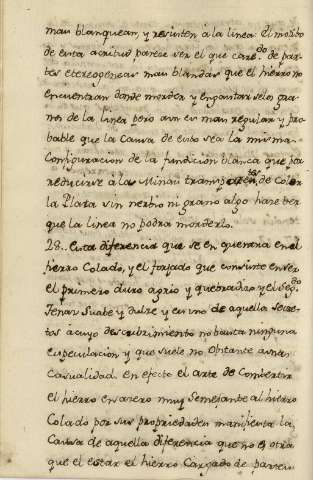 mas blanquean, y resisten á la linea: el motibo
de esta acritud parece ser el que care.do de par-
tes etereogeneas mas blandas que el hierro no
encuentran donde morder y engastarse los gra-
nos de la linea pero aun es mas regular y pro-
bable que la Causa de esto sea la misma
Configuracion de la fundicion blanca que por
reducirse a las Minas transparentes, de Color
la Plata sin nerbio ni grano algo hace ber
que la linea no podra morderlo.
28.. Esta diferencia que se en quentra en el
hierro Colado, y el forjado que consiste en ser
el primero duro agrio y quebradizo y el Seg.do
Tenaz Suabe y dulze y es uno de aquellos secre-
tos a cuyo descubrimiento no basta ninguna
especulacion y que suele no Obstante a una
Casualidad. en efecto el arte de Combertir
el hierro en azero muy Semejante al hierro
Colado por sus propiedades manifiesta la
Causa de aquella diferencia que no es otra
que el estar el hierro Cargado de partes